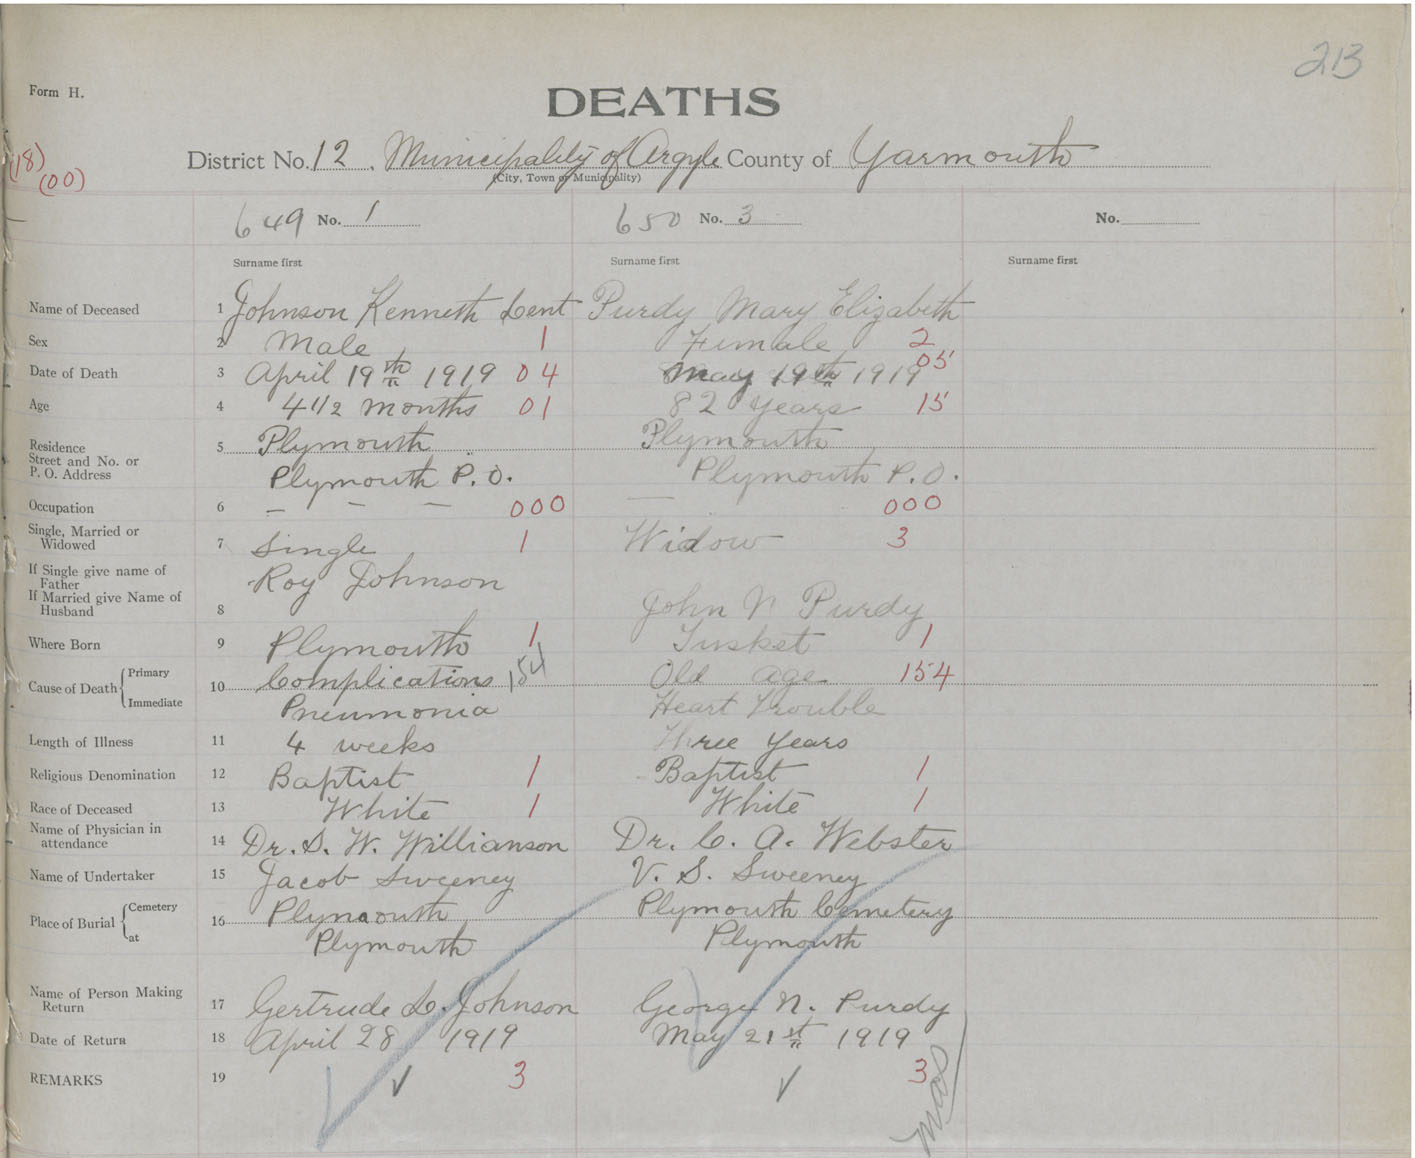 213
Form H.
DEATHS
District No. 12. Municipality of Argyle County of Yarmouth
(City, Town or Municipality)
(18)
(00)
649 No. 1 650 No. 3 No.
Surname first Surname first Surname first
Name of Deceased 1 Johnson Kenneth Lent Purdy Mary Elizabeth
Sex 2 Male 1 Female 2
Date of Death 3 April 19th 1919 04 May 19th 1919 05
Age 4 4 1/2 months 01 82 years 15
Residence
Street and No. or
P. O. Address
5 Plymouth Plymouth
Plymouth P.O. Plymouth P.O.
Occupation 6 – – – 000 — 000
Single, Married or
Widowed
7 Single 1 Widow 3
If Single give name of
Father
If Married give Name of
Husband
8 Roy Johnson John N Purdy
Where Born 9 Plymouth 1 Tusket 1
Cause of Death { Primary 10 Complications 154 Old age 154
Immediate Pneumonia Heart Trouble
Length of Illness 11 4 weeks Three years
Religious Denomination 12 Baptist 1 Baptist 1
Race of Deceased 13 White 1 White 1
Name of Physician in
attendance
14 Dr. S. W. Willianson Dr. C. A. Webster
Name of Undertaker 15 Jacob Sweeney V. S. Sweeney
Place of Burial { Cemetery 16 Plymouth Plymouth Cemetery
at Plymouth Plymouth
Name of Person Making
Return
17 Gertrude L. Johnson George N. Purdy
Date of Return 18 April 28 1919 May 21st 1919
REMARKS 19 ✓ 3 ✓ 3